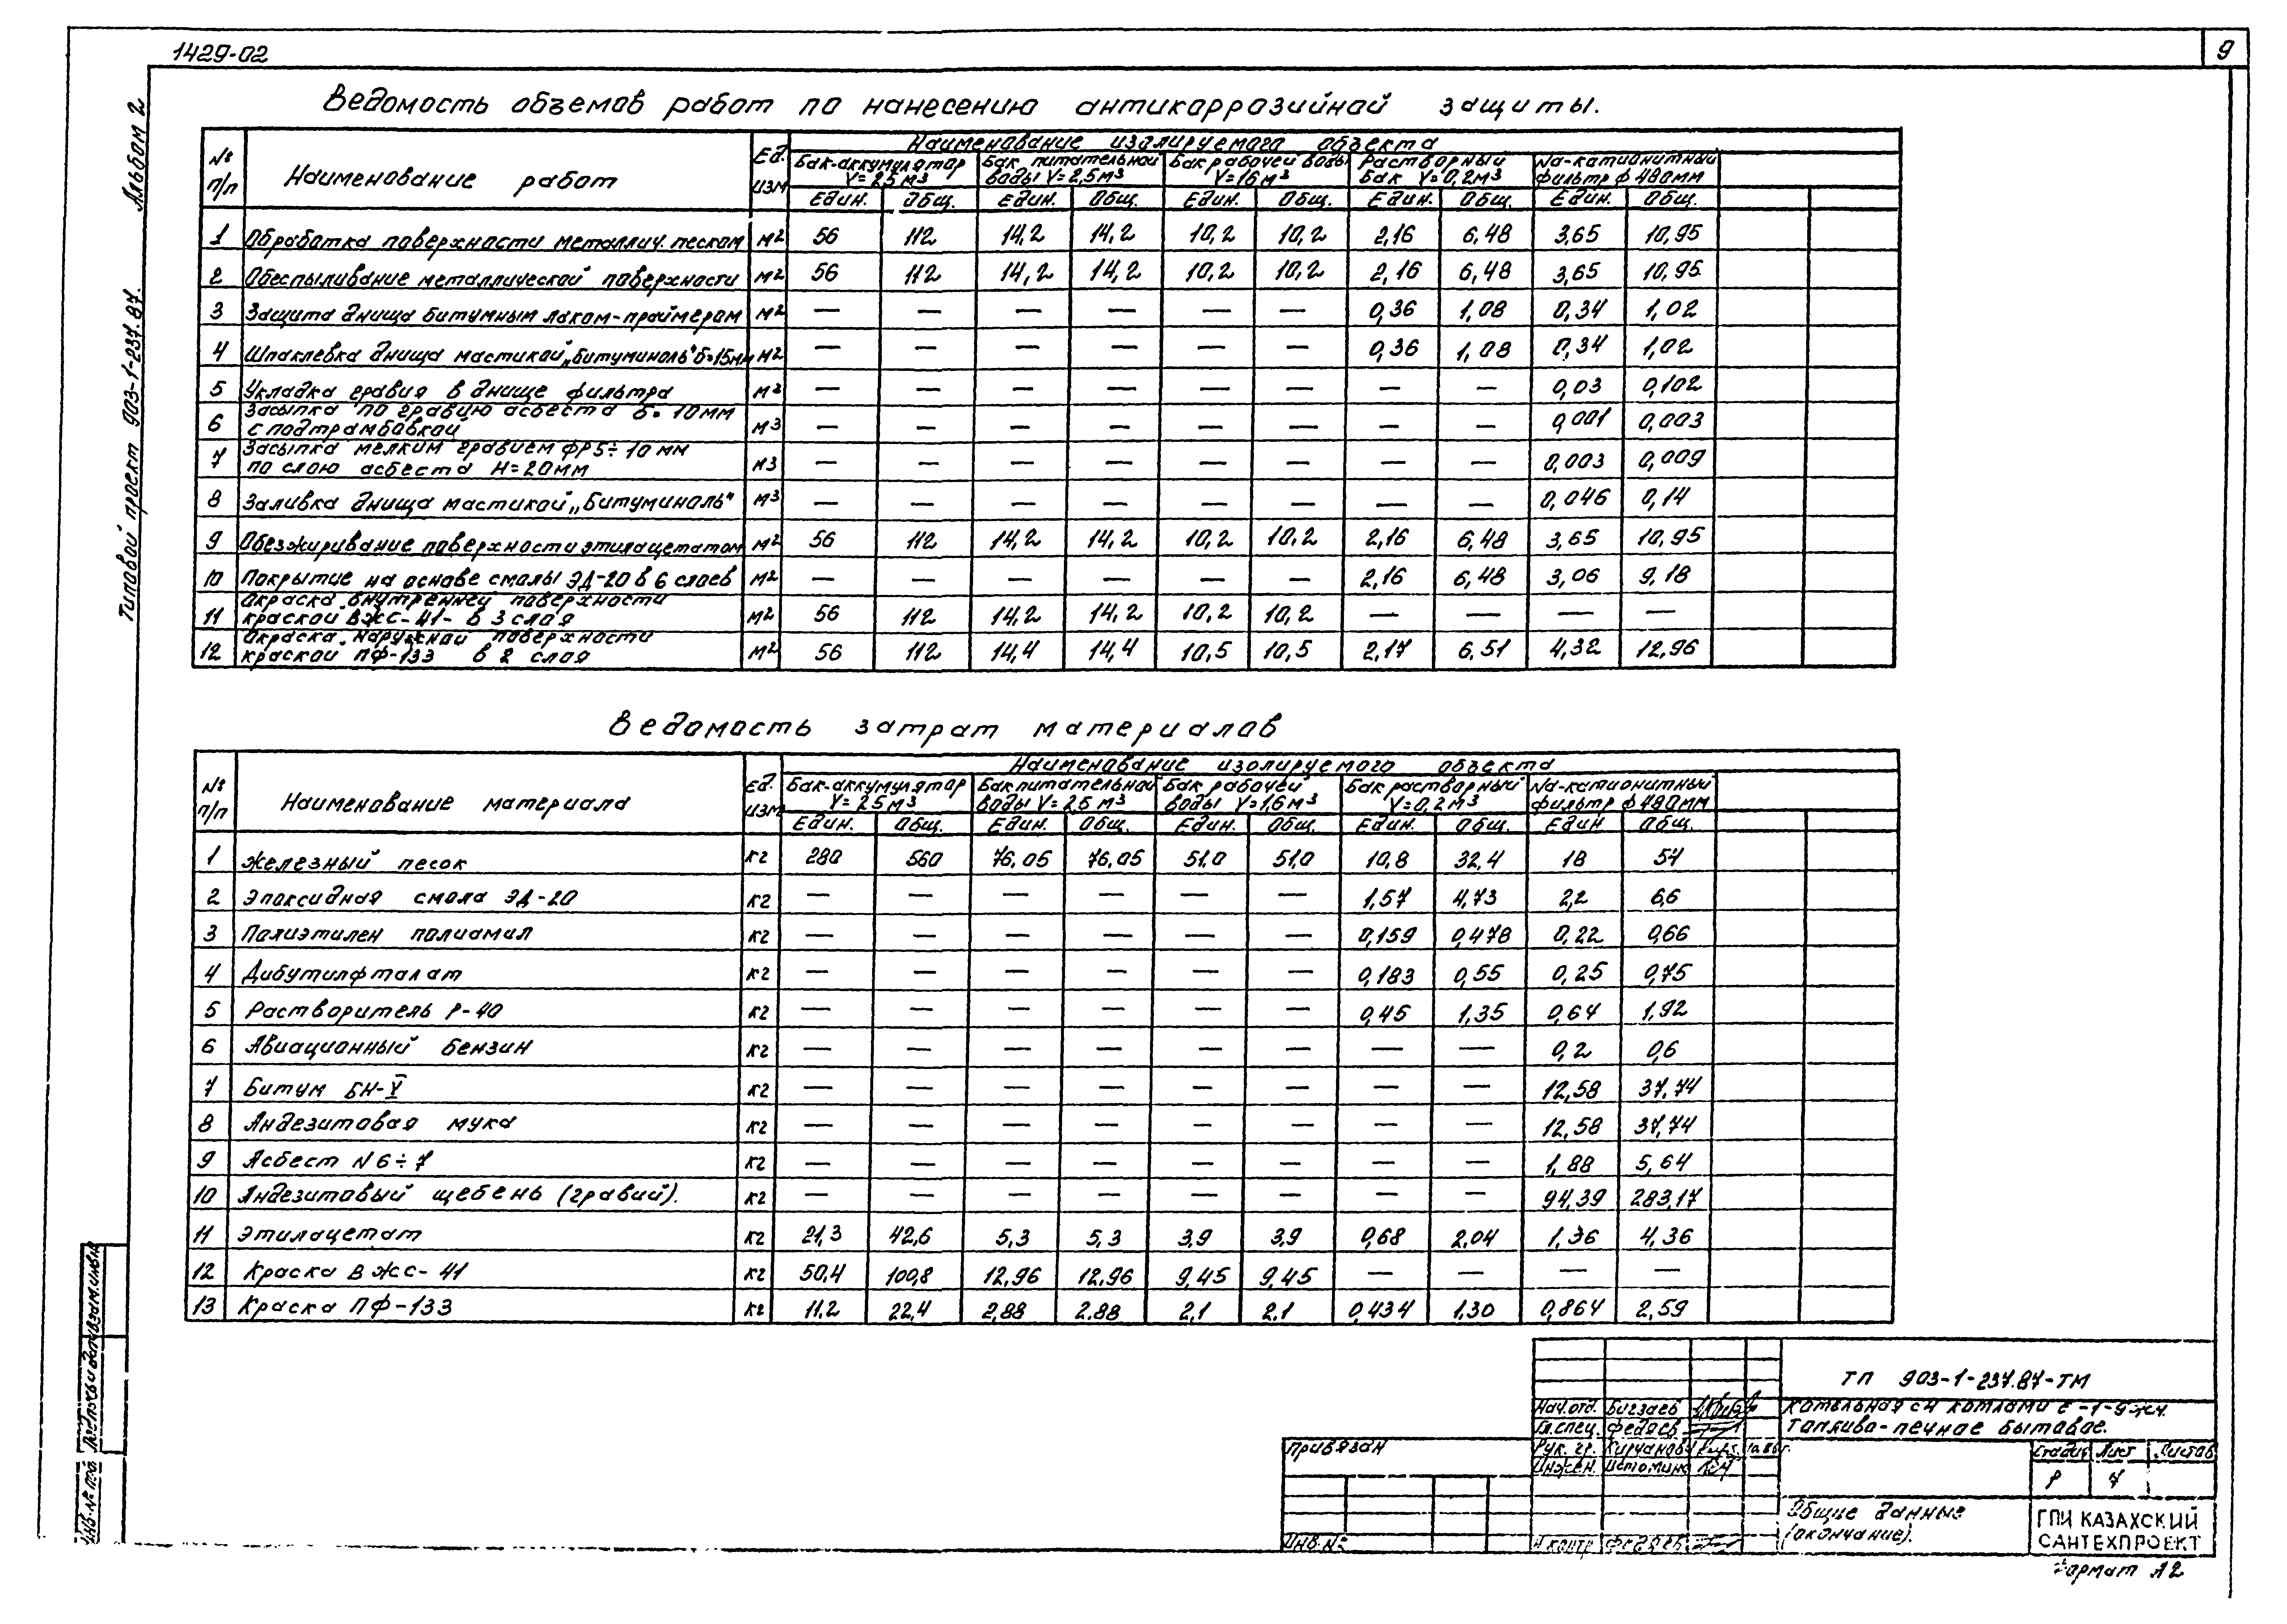 1429-02
9
Альбом 2
Типовой проект 903-1-237.87.
Ведомость объемов работ по нанесению антикоррозийной защиты.
№ п/п | Наименование работ | Ед. изм | Наименование изолируемого объекта
Бак-аккумулятор V=25м³ | Бак питательной воды V=2,5м³ | Бак рабочей воды V=1,6м³ | Растворный бак V=0,2м³ | Na-катионитный фильтр ф 480мм
Един. | Общ. | Един. | Общ. | Един. | Общ. | Един. | Общ. | Един. | Общ.
1 | Обработка поверхности металлич. песком | м² | 56 | 112 | 14,2 | 14,2 | 10,2 | 10,2 | 2,16 | 6,48 | 3,65 | 10,95
2 | Обеспыливание металлической поверхности | м² | 56 | 112 | 14,2 | 14,2 | 10,2 | 10,2 | 2,16 | 6,48 | 3,65 | 10,95
3 | Защита днища битумным лаком-праймером | м² | — | — | — | — | — | — | 0,36 | 1,08 | 0,34 | 1,02
4 | Шпаклевка днища мастикой „Битуминоль" б=15мм | м² | — | — | — | — | — | — | 0,36 | 1,08 | 0,34 | 1,02
5 | Укладка гравия в днище фильтра | м³ | — | — | — | — | — | — | — | — | 0,03 | 0,102
6 | Засыпка по гравию асбеста б= 10мм с подтрамбовкой | м³ | — | — | — | — | — | — | — | — | 0,001 | 0,003
7 | Засыпка мелким гравием фр 5÷10 мм по слою асбеста H=20мм | м3 | — | — | — | — | — | — | — | — | 0,003 | 0,009
8 | Заливка днища мастикой „Битуминоль" | м³ | — | — | — | — | — | — | — | — | 0,046 | 0,14
9 | Обезжиривание поверхности этилацетатом | м² | 56 | 112 | 14,2 | 14,2 | 10,2 | 10,2 | 2,16 | 6,48 | 3,65 | 10,95
10 | Покрытие на основе смолы ЭД-20 в 6 слоев | м² | — | — | — | — | — | — | 2,16 | 6,48 | 3,06 | 9,18
11 | Окраска внутренней поверхности краской ВЖС-41- в 3 слоя | м² | 56 | 112 | 14,2 | 14,2 | 10,2 | 10,2 | — | — | — | —
12 | Окраска наружной поверхности краской ПФ-133 в 2 слоя | м² | 56 | 112 | 14,4 | 14,4 | 10,5 | 10,5 | 2,17 | 6,51 | 4,32 | 12,96
Ведомость затрат материалов
№ п/п | Наименование материала | Ед. изм | Наименование изолируемого объекта
Бак-аккумулятор V=25м³ | Бак питательной воды V=25 м³ | Бак рабочей воды V=1,6м³ | Бак растворный V=0,2м³ | Na-катионитный фильтр ф 480мм
Един. | Общ. | Един. | Общ. | Един. | Общ. | Един. | Общ. | Един | Общ.
1 | Железный песок | кг | 280 | 560 | 76,05 | 76,05 | 51,0 | 51,0 | 10,8 | 32,4 | 18 | 54
2 | Эпоксидная смола ЭД-20 | кг | — | — | — | — | — | — | 1,57 | 4,73 | 2,2 | 6,6
3 | Полиэтилен полиамил | кг | — | — | — | — | — | — | 0,159 | 0,478 | 0,22 | 0,66
4 | Дибутилфталат | кг | — | — | — | — | — | — | 0,183 | 0,55 | 0,25 | 0,75
5 | Растворитель Р-40 | кг | — | — | — | — | — | — | 0,45 | 1,35 | 0,64 | 1,92
6 | Авиационный бензин | кг | — | — | — | — | — | — | — | — | 0,2 | 0,6
7 | Битум БН-V | кг | — | — | — | — | — | — | — | — | 12,58 | 37,74
8 | Андезитовая мука | кг | — | — | — | — | — | — | — | — | 12,58 | 37,74
9 | Асбест N 6÷7 | кг | — | — | — | — | — | — | — | — | 1,88 | 5,64
10 | Андезитовый щебень (гравий). | кг | — | — | — | — | — | — | — | — | 94,39 | 283,17
11 | Этилацетат | кг | 21,3 | 42,6 | 5,3 | 5,3 | 3,9 | 3,9 | 0,68 | 2,04 | 1,36 | 4,36
12 | Краска ВЖС-41 | кг | 50,4 | 100,8 | 12,96 | 12,96 | 9,45 | 9,45 | — | — | — | —
13 | Краска ПФ-133 | кг | 11,2 | 22,4 | 2,88 | 2.88 | 2,1 | 2.1 | 0,434 | 1,30 | 0,864 | 2,59
ТП 903-1-237.87-ТМ
Нач.отд. Бигзаев
Гл.спец. Федяев
Рук. гр.
Инжен. Истомина
Н.контр Федяев
Топливо-печное бытовое.
Стадия | Лист | Листов
Р | 7
Общие данные (окончание).
ГПИ КАЗАХСКИЙ
САНТЕХПРОЕКТ
Привязан
Инв.№
Формат А2